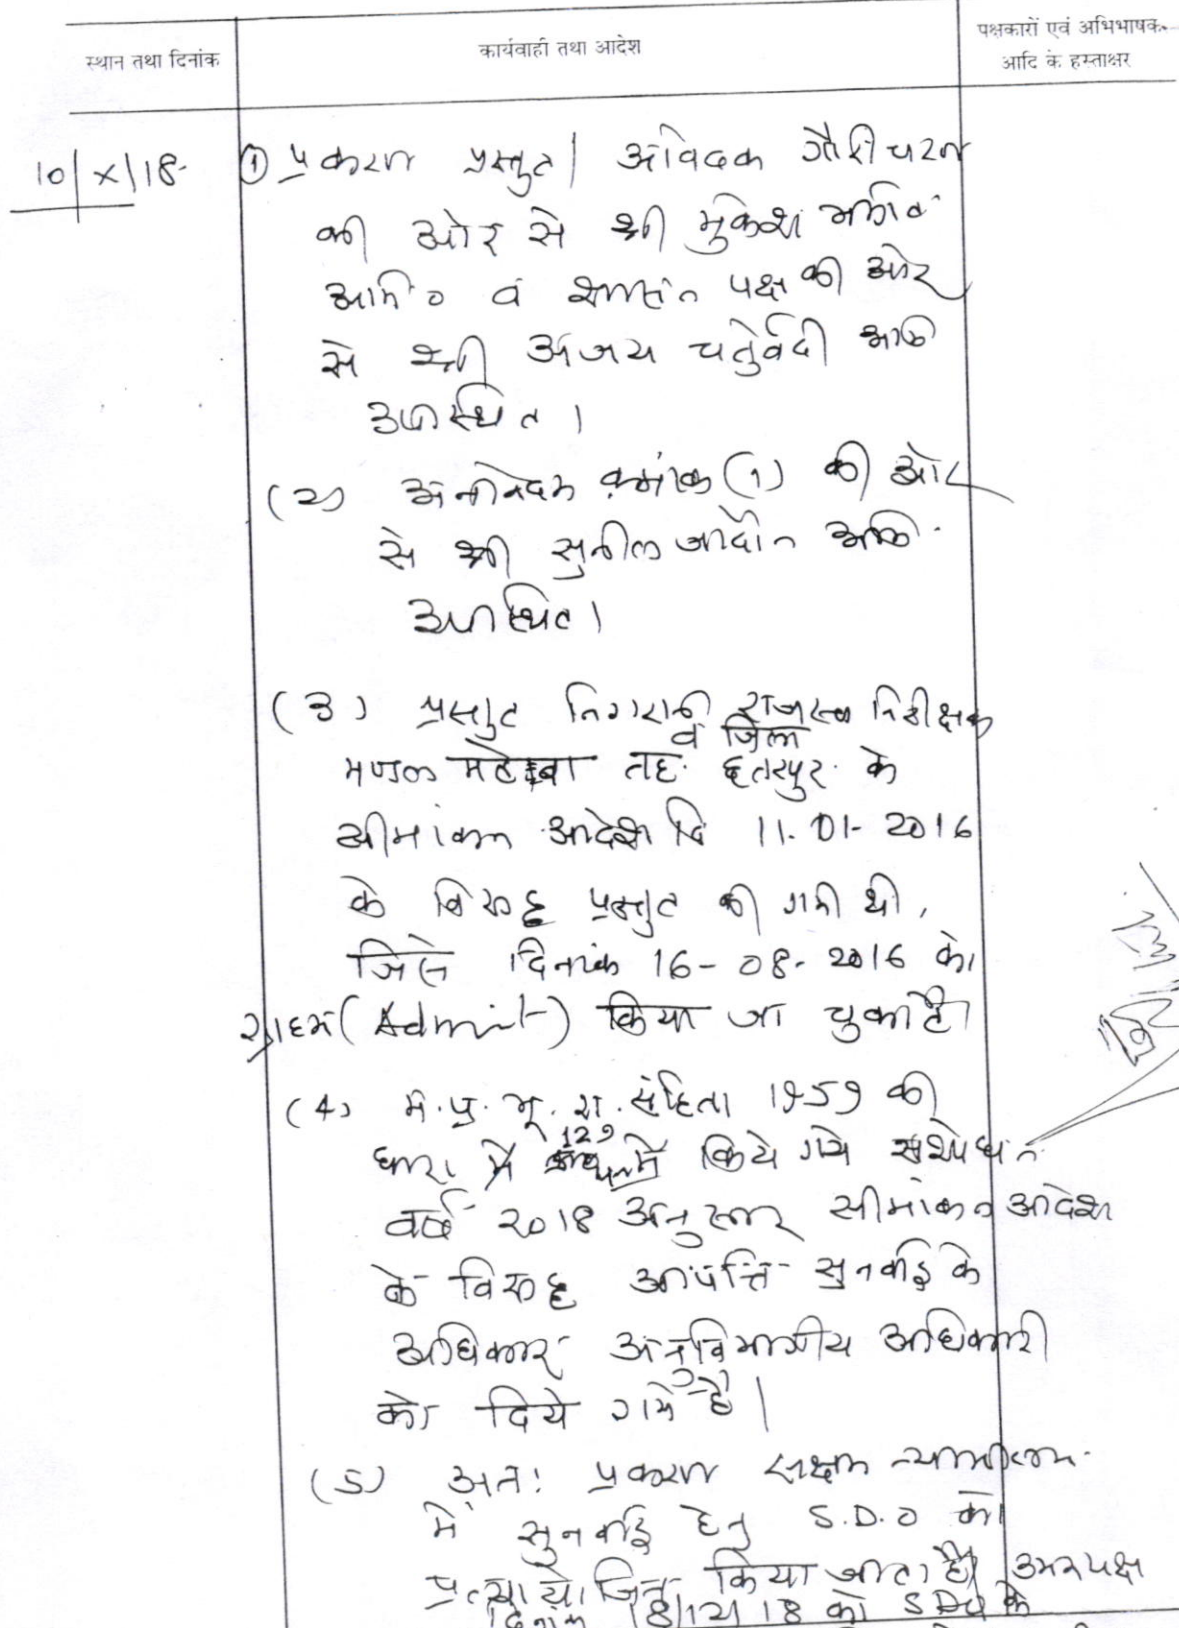 स्थान तथा दिनांक
कार्यवाही तथा आदेश
पक्षकारों एवं अभिभाषक
आदि के हस्ताक्षर
10/X/18
① प्रकरण प्रस्तुत। आवेदक गौरीचरन
की ओर से श्री मुकेश भार्गव
अभि० व शासन पक्ष की ओर
से श्री अजय चतुर्वेदी अभि
उपस्थित।
(2) अनावेदक क्रमांक (1) की ओर
से श्री सुनील जादौन अभि.
उपस्थित।
(3) प्रस्तुत निगरानी राजस्व निरीक्षक
मण्डल तह. व जिला छतरपुर के
सीमांकन आदेश दि 11-01-2016
के विरुद्ध प्रस्तुत की गयी थी,
जिसे दिनांक 16-08-2016 को
ग्राह्य (Admit) किया जा चुका है।
(4) म.प्र. भू. रा. संहिता 1959 की
धारा 129 में किये गये संशोधन
वर्ष 2018 अनुसार सीमांकन आदेश
के विरुद्ध आपत्ति सुनवाई के
अधिकार अनुविभागीय अधिकारी
को दिये गये है।
(5) अतः प्रकरण सक्षम न्यायालय
में सुनवाई हेतु S.D.O को
प्रत्यायोजित किया जाता है। उभयपक्ष
दिनांक 18/12/18 को SDO के